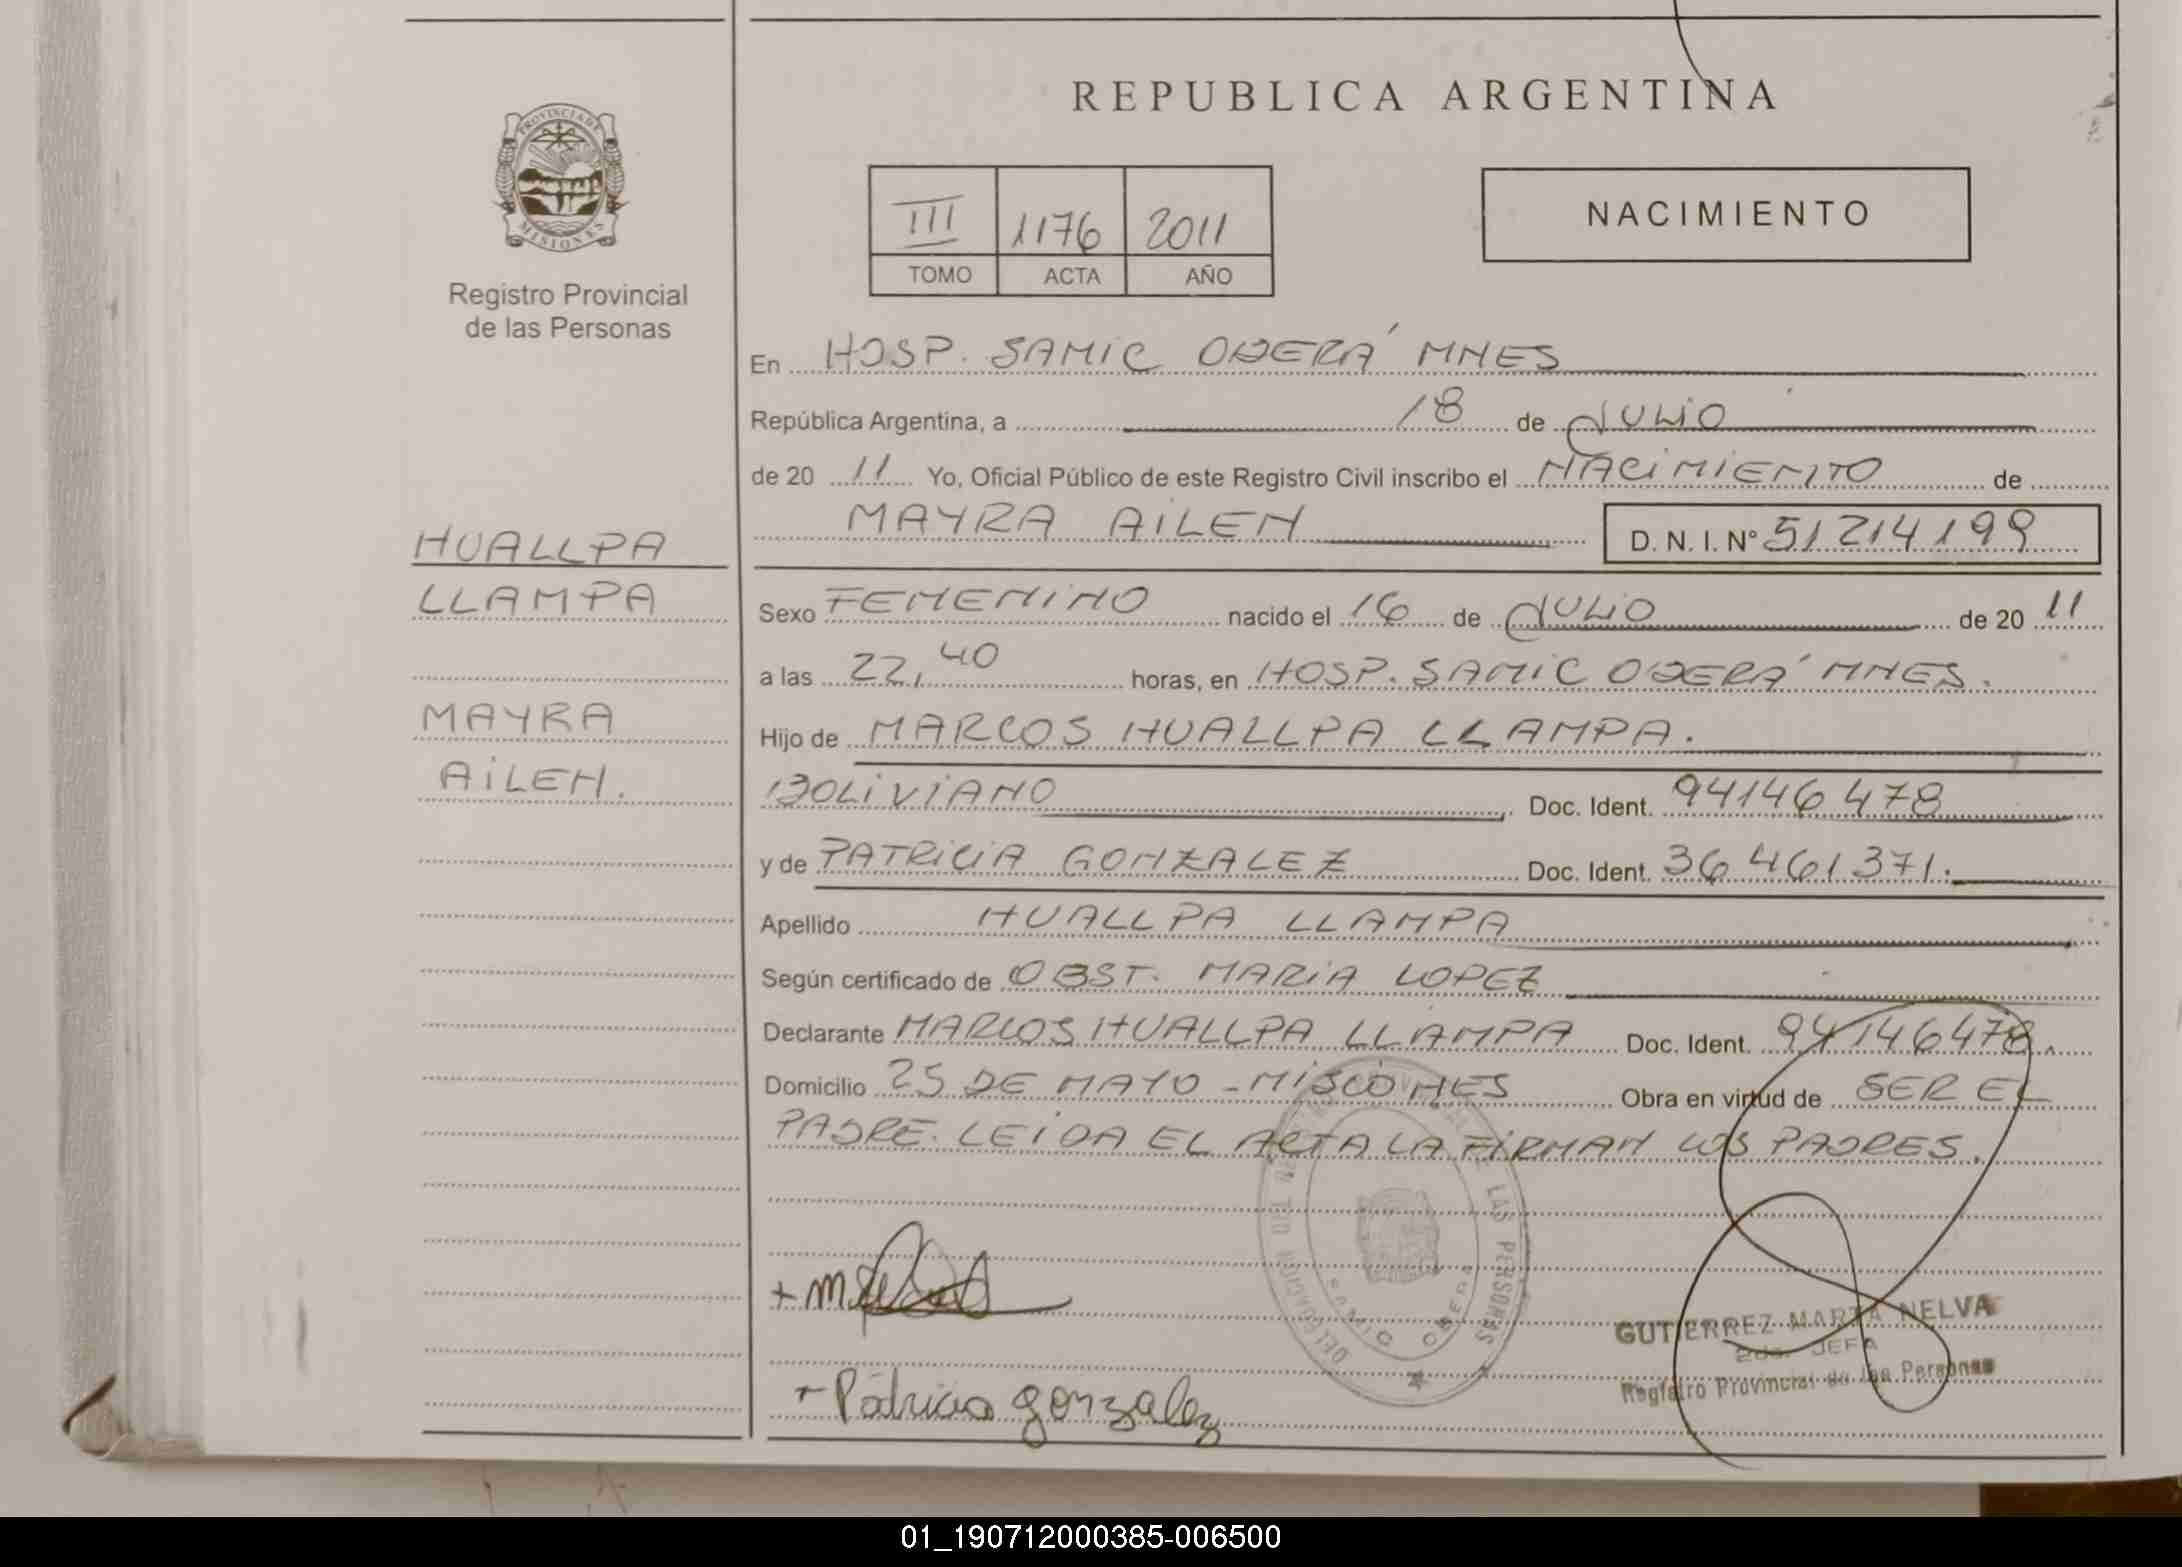 REPUBLICA ARGENTINA
PROVINCIA DE
MISIONES
Registro Provincial
de las Personas
III 1176 2011
TOMO ACTA AÑO
NACIMIENTO
En HOSP. SAMIC OBERÁ MNES
República Argentina, a 18 de JULIO
de 20 11 Yo, Oficial Público de este Registro Civil inscribo el NACIMIENTO de
MAYRA AILEN D. N. I. N° 51 214 199
HUALLPA
LLAMPA
MAYRA
AILEN.
Sexo FEMENINO nacido el 16 de JULIO de 20 11
a las 22,40 horas, en HOSP. SAMIC OBERÁ MNES.
Hijo de MARCOS HUALLPA LLAMPA.
BOLIVIANO Doc. Ident. 94146478
y de PATRICIA GONZALEZ Doc. Ident. 36461371.
Apellido HUALLPA LLAMPA
Según certificado de OBST. MARIA LOPEZ
Declarante MARCOS HUALLPA LLAMPA Doc. Ident. 94146478.
Domicilio 25 DE MAYO - MISIONES Obra en virtud de SER EL
PADRE. LEIDA EL ACTA LA FIRMAN LOS PADRES.
LAS PERSONAS
SAMIC OBERA
+ Patricia gonzalez
GUTIERREZ MARTA NELVA
2da. JEFA
Registro Provincial de las Personas
01_190712000385-006500